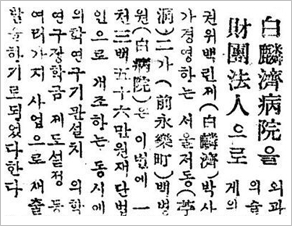 白麟濟病院을
財團法人으로
외과
의술
게의
권위백린제(白麟濟)박사
가경영하는서울저동(苧
洞)二가(前永樂町)백병
원(白病院)은이번에一
천三백五十六만원재단법
인으로개조하는동시에
의학연구기관설치 의학
연구장학금제도설정등
여러가지사업으로재출
발하기로되었다한다